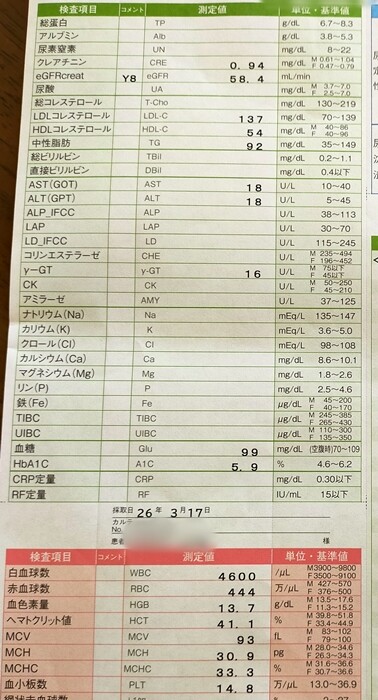 検査項目 コメント 測定値 単位・基準値
総蛋白 TP g/dL 6.7～8.3
アルブミン Alb g/dL 3.8～5.3
尿素窒素 UN mg/dL 8～22
クレアチニン CRE 0.94 mg/dL M 0.61～1.04 F 0.47～0.79
eGFRcreat Y8 eGFR 58.4 mL/min
尿酸 UA mg/dL M 3.7～7.0 F 2.5～7.0
総コレステロール T-Cho mg/dL 130～219
LDLコレステロール LDL-C 137 mg/dL 70～139
HDLコレステロール HDL-C 54 mg/dL M 40～86 F 40～96
中性脂肪 TG 92 mg/dL 35～149
総ビリルビン TBil mg/dL 0.2～1.1
直接ビリルビン DBil mg/dL 0.4以下
AST(GOT) AST 18 U/L 10～40
ALT(GPT) ALT 18 U/L 5～45
ALP_IFCC ALP U/L 38～113
LAP LAP U/L 30～70
LD_IFCC LD U/L 115～245
コリンエステラーゼ CHE U/L M 235～494 F 196～452
γ－GT γ-GT 16 U/L M 75以下 F 45以下
CK CK U/L M 50～250 F 45～210
アミラーゼ AMY U/L 37～125
ナトリウム(Na) Na mEq/L 135～147
カリウム(K) K mEq/L 3.6～5.0
クロール(Cl) Cl mEq/L 98～108
カルシウム(Ca) Ca mg/dL 8.6～10.1
マグネシウム(Mg) Mg mg/dL 1.8～2.6
リン(P) P mg/dL 2.5～4.6
鉄(Fe) Fe μg/dL M 45～200 F 40～170
TIBC TIBC μg/dL M 245～385 F 265～430
UIBC UIBC μg/dL M 110～300 F 135～350
血糖 Glu 99 mg/dL (空腹時)70～109
HbA1C A1C 5.9 % 4.6～6.2
CRP定量 CRP mg/dL 0.30以下
RF定量 RF IU/mL 15以下
採取日 26年 3月17日
カルテ
No.
患者 様
検査項目 コメント 測定値 単位・基準値
白血球数 WBC 4600 /μL M3900～9800 F3500～9100
赤血球数 RBC 444 万/μL M 427～570 F 376～500
血色素量 HGB 13.7 g/dL M 13.5～17.6 F 11.3～15.2
ヘマトクリット値 HCT 41.1 % M 39.8～51.8 F 33.4～44.9
MCV MCV 93 fL M 83～102 F 79～100
MCH MCH 30.9 pg M 28.0～34.6 F 26.3～34.3
MCHC MCHC 33.3 % M 31.6～36.6 F 30.7～36.6
血小板数 PLT 14.8 万/μL 13.0～36.9